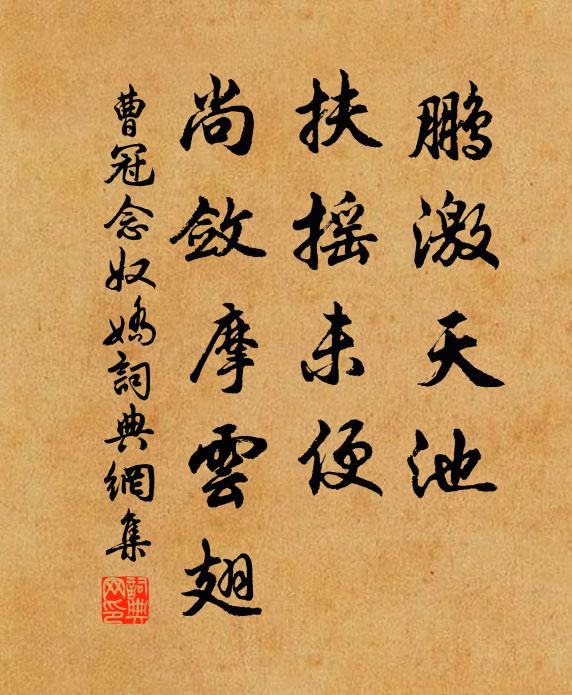 鵬激天池
扶摇未便
尚斂摩雲翅
曹冠念奴嬌詞典網集
詞典網印